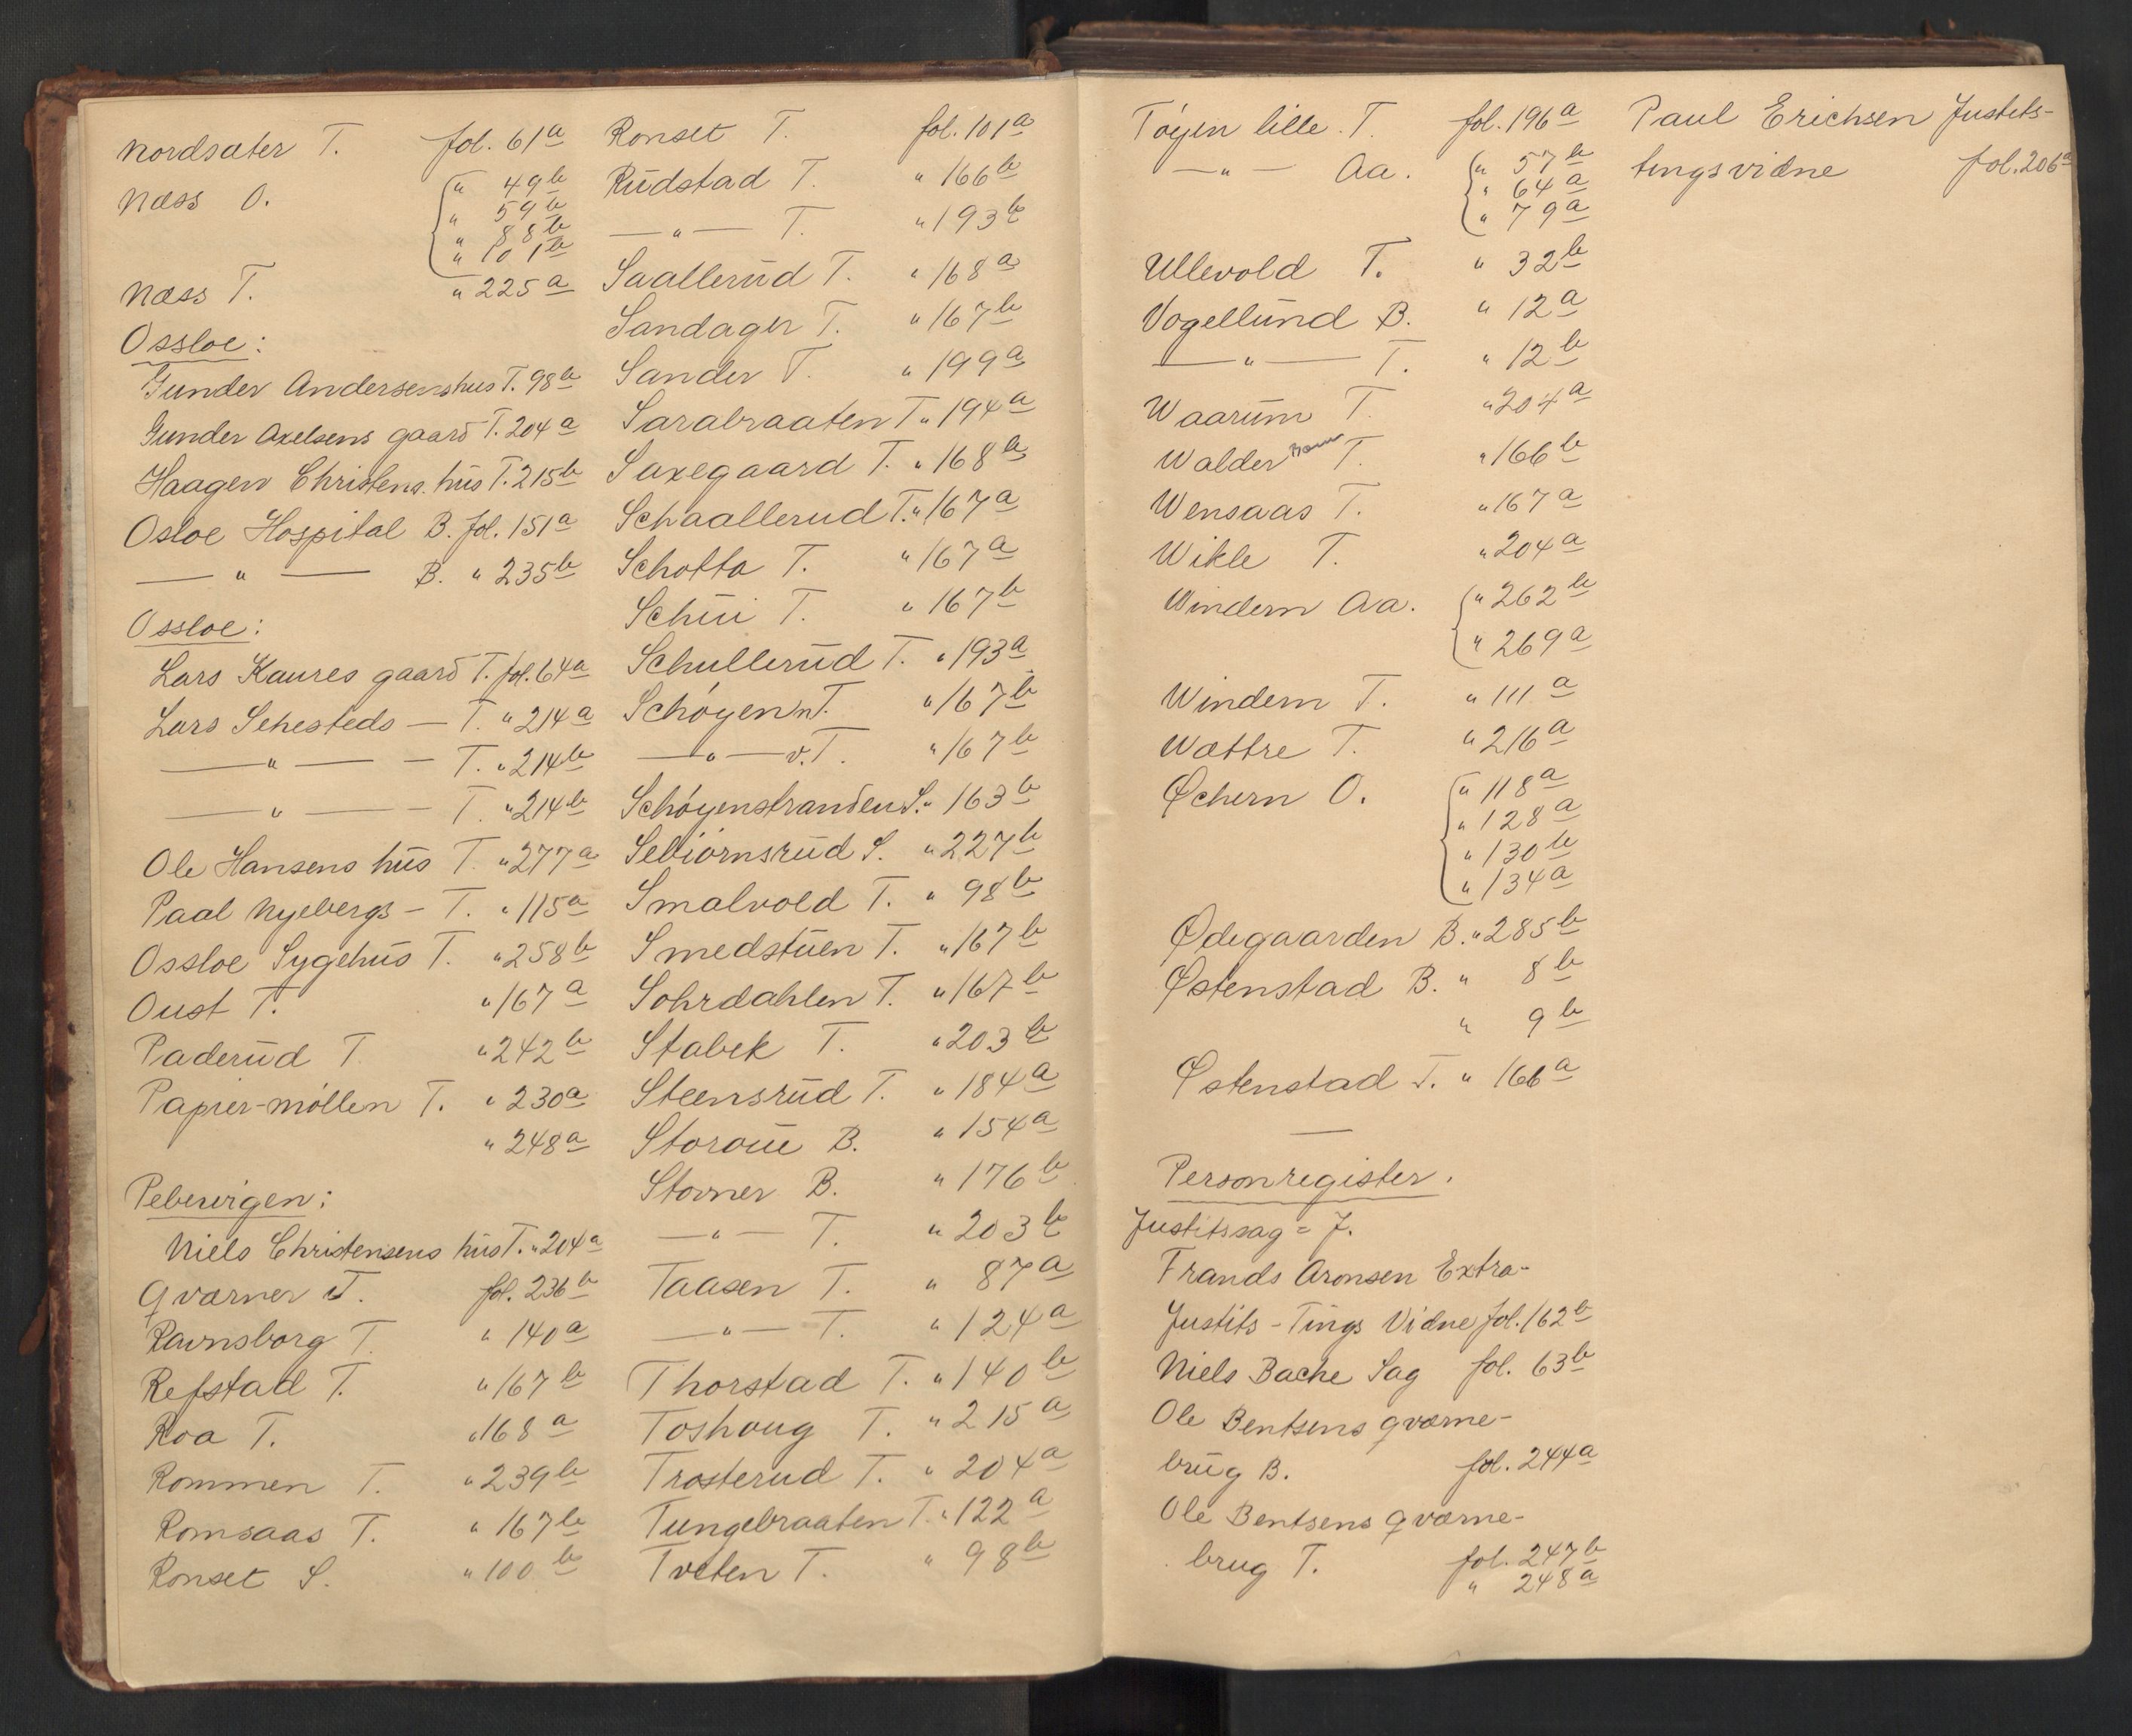 Nordsæter T. fol. 61a
Næss O. „ 49b
„ 59b
„ 88b
„ 101b
Næss T. „ 225a
Ossloe:
Gunder Andersenshus T. 98b
Gunder Axelsens gaard T. 204a
Haagen Christens. hus T. 215b
Osloe Hospital B. fol. 151a
— „ — B. „ 235b
Ossloe:
Lars Kaures gaard T. fol. 64a
Lars Sehesteds — T. „ 214a
— „ — — T. „ 214b
— „ — — T. „ 214b
Ole Hansens hus T. „ 277a
Paal Nyebergs — T. „ 115a
Ossloe Sygehus T. „ 258b
Oust T. „ 167a
Paderud T. „ 242b
Papier-møllen T. „ 230a
„ 248a
Peberwigen:
Niels Christensens hus T. „ 204a
Qværner T. fol. 236b
Ravnsborg T. „ 140a
Refstad T. „ 167b
Roa T. „ 168a
Rommen T. „ 239b
Romsaas T. „ 167b
Ronset S. „ 100b
Ronset T. fol. 101a
Rudstad T. „ 166b
— „ — T. „ 193b
Saallerud T. „ 168a
Sandager T. „ 167b
Sander T. „ 199a
Sarabraaten T. „ 194a
Saxegaard T. „ 168b
Schaallerud T. „ 167a
Schotta T. „ 167a
Schui T. „ 167b
Schullerud T. „ 193a
Schøyen n.T. „ 167b
— „ — v.T. „ 167b
Schøyenstranden S. „ 163b
Sebiørnsrud S. „ 227b
Smalvold T. „ 98b
Smedstuen T. „ 167b
Sohrdahlen T. „ 167b
Stabek T. „ 203b
Steensrud T. „ 184a
Storoue B. „ 154a
Stovner B. „ 176b
— „ — T. „ 203b
Taasen T. „ 87a
— „ — T. „ 124a
Thorstad T. „ 140b
Toshoug T. „ 215a
Trosterud T. „ 204a
Tungebraaten T. „ 122a
Tveten T. „ 98b
Tøyen lille T. fol. 196a
— „ — Aa. „ 57b
„ 64a
„ 79a
Ullevold T. „ 32b
Vogellund B. „ 12a
— „ — T. „ 12b
Waarum T. „ 204a
Walder T. „ 166b
Wensaas T. „ 167a
Wikle T. „ 204a
Windern Aa. „ 262b
„ 269a
Windern T. „ 111a
Wættre T. „ 216a
Øchern O. „ 118a
„ 128a
„ 130b
„ 134a
Ødegaarden B. „ 285b
Østenstad B. „ 8b
„ 9b
Østenstad T. „ 166a
—
Personregister.
Justitssag = J.
Frands Aronsen Extra-
Justits-Tings Vidne fol. 162b
Niels Bache Sag fol. 63b
Ole Bentsens qværne-
brug B. fol. 244a
Ole Bentsens qværne-
brug T. fol. 247b
„ 248a
Paul Erichsen Justits-
tingsvidne fol. 206a